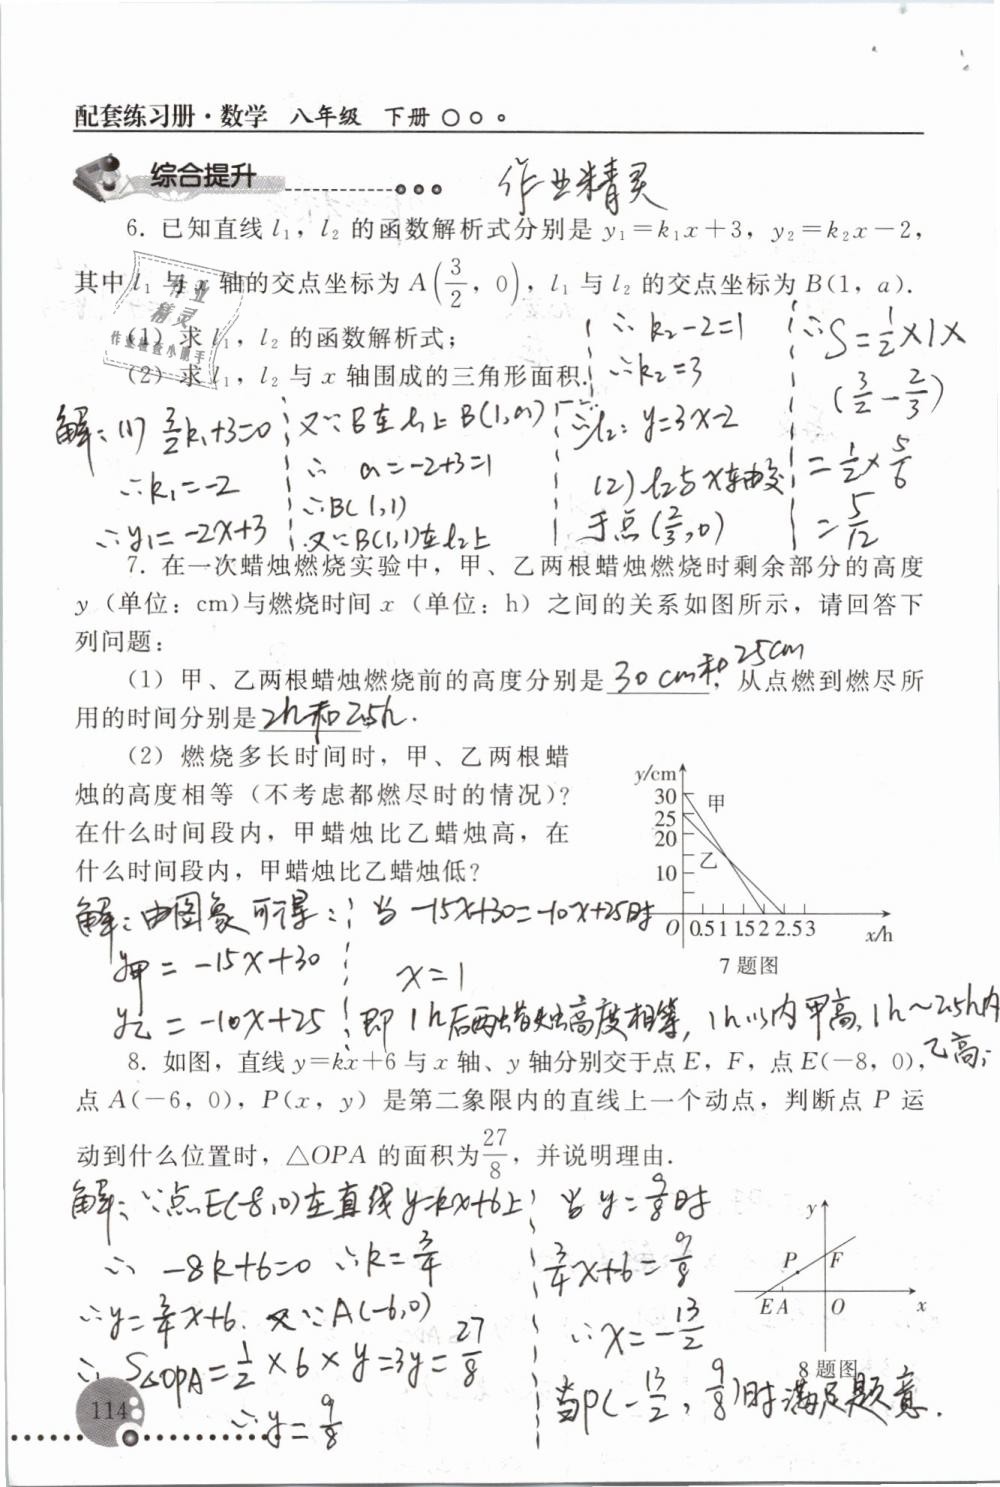 配套练习册·数学 八年级 下册
综合提升
作业精灵
6. 已知直线 l₁, l₂ 的函数解析式分别是 y₁=k₁x+3, y₂=k₂x-2,
其中 l₁ 与 x 轴的交点坐标为 A(3/2, 0), l₁ 与 l₂ 的交点坐标为 B(1, a).
作业
精灵
作业检查小能手
(1) 求 l₁, l₂ 的函数解析式;
(2) 求 l₁, l₂ 与 x 轴围成的三角形面积.
解: (1) 3/2k₁+3=0
∴k₁=-2
∴y₁=-2x+3
又∵B在l₁上 B(1,a)
∴ a=-2+3=1
∴B(1,1)
又∵B(1,1)在l₂上
∴k₂-2=1
∴k₂=3
∴l₂: y=3x-2
(2) l₂与x轴交
于点(2/3,0)
∴S=1/2×1×
(3/2-2/3)
=1/2×5/6
=5/12
7. 在一次蜡烛燃烧实验中,甲、乙两根蜡烛燃烧时剩余部分的高度
y (单位: cm)与燃烧时间 x (单位: h) 之间的关系如图所示,请回答下
列问题:
(1) 甲、乙两根蜡烛燃烧前的高度分别是 30cm和25cm, 从点燃到燃尽所
用的时间分别是 2h和2.5h.
(2) 燃烧多长时间时,甲、乙两根蜡
烛的高度相等 (不考虑都燃尽时的情况)?
在什么时间段内,甲蜡烛比乙蜡烛高,在
什么时间段内,甲蜡烛比乙蜡烛低?
y/cm
30
25
20
10
甲
乙
O 0.5 1 1.5 2 2.5 3
x/h
7题图
解: 由图象可得:
y甲=-15x+30
y乙=-10x+25
当-15x+30=-10x+25时
x=1
即1h后两蜡烛高度相等, 1h以内甲高, 1h~2.5h内
乙高;
8. 如图,直线 y=kx+6 与 x 轴、y 轴分别交于点 E, F, 点 E(-8, 0),
点 A(-6, 0), P(x, y) 是第二象限内的直线上一个动点,判断点 P 运
动到什么位置时, △OPA 的面积为27/8, 并说明理由.
解: ∵点E(-8,0)在直线y=kx+6上
∴ -8k+6=0 ∴k=3/4
∴y=3/4x+6. 又∵A(-6,0)
∴ S△OPA=1/2×6×y=3y=27/8
∴y=9/8
当y=9/8时
3/4x+6=9/8
∴x=-13/2
当P(-13/2, 9/8)时满足题意.
y
P
F
E A
O
x
8题图
114